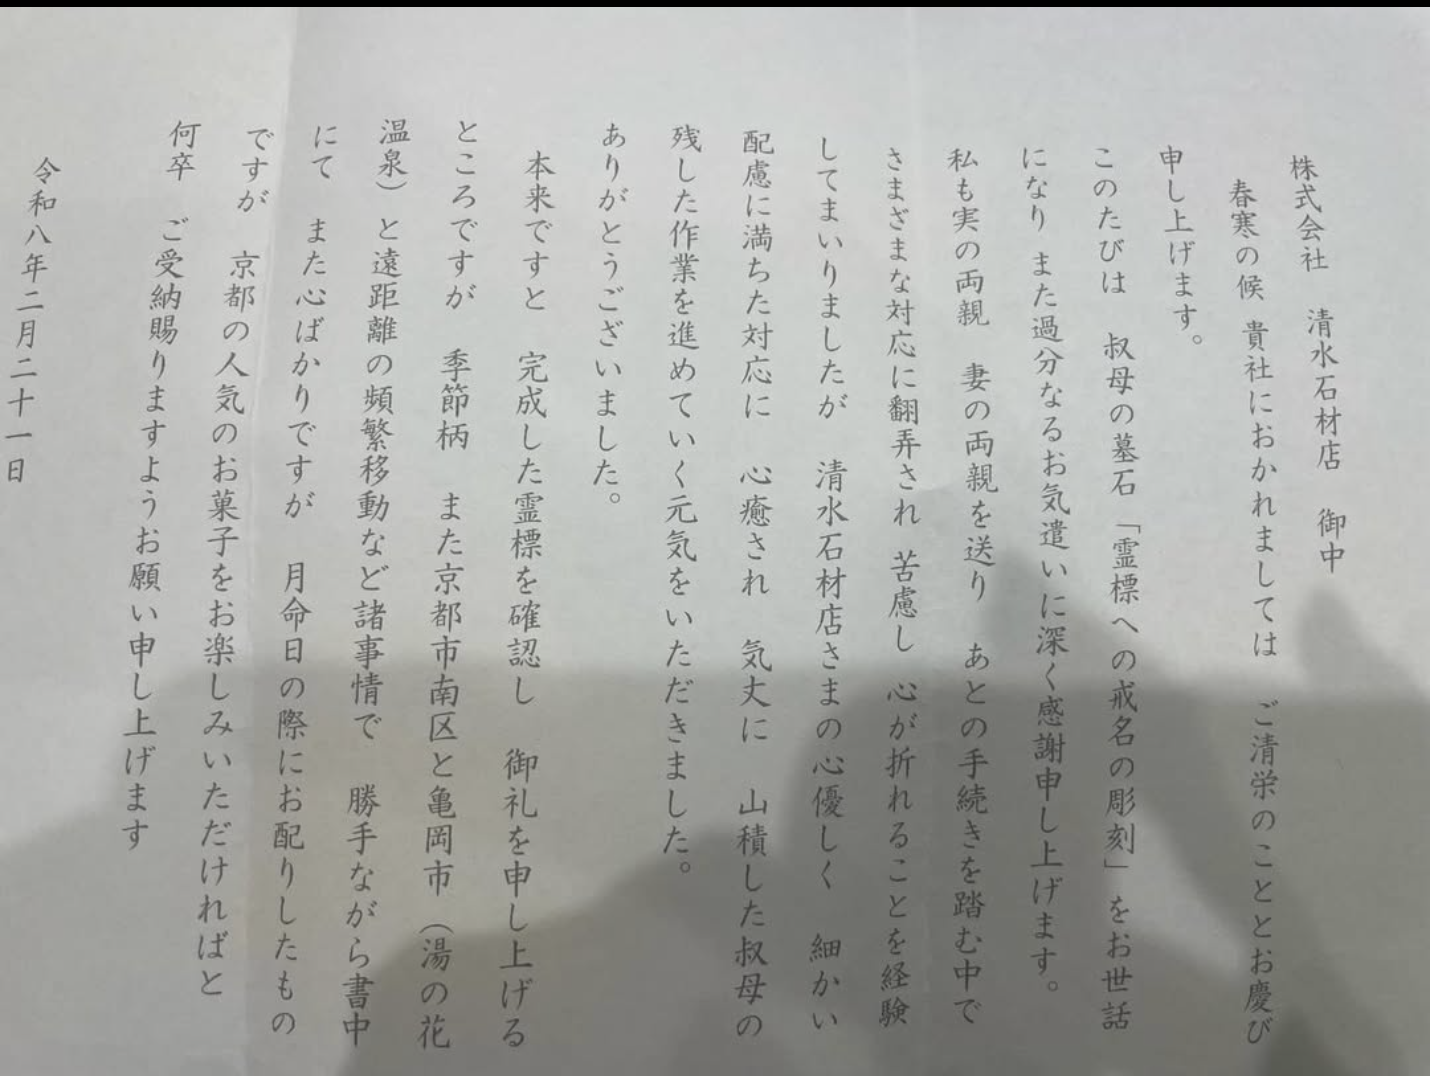 株式会社 清水石材店 御中
春寒の候 貴社におかれましては ご清栄のこととお慶び
申し上げます。
このたびは 叔母の墓石「霊標への戒名の彫刻」をお世話
になり また過分なるお気遣いに深く感謝申し上げます。
私も実の両親 妻の両親を送り あとの手続きを踏む中で
さまざまな対応に翻弄され 苦慮し 心が折れることを経験
してまいりましたが 清水石材店さまの心優しく 細かい
配慮に満ちた対応に 心癒され 気丈に 山積した叔母の
残した作業を進めていく元気をいただきました。
ありがとうございました。
本来ですと 完成した霊標を確認し 御礼を申し上げる
ところですが 季節柄 また京都市南区と亀岡市(湯の花
温泉)と遠距離の頻繁移動など諸事情で 勝手ながら書中
にて また心ばかりですが 月命日の際にお配りしたもの
ですが 京都の人気のお菓子をお楽しみいただければと
何卒 ご受納賜りますようお願い申し上げます
令和八年二月二十一日